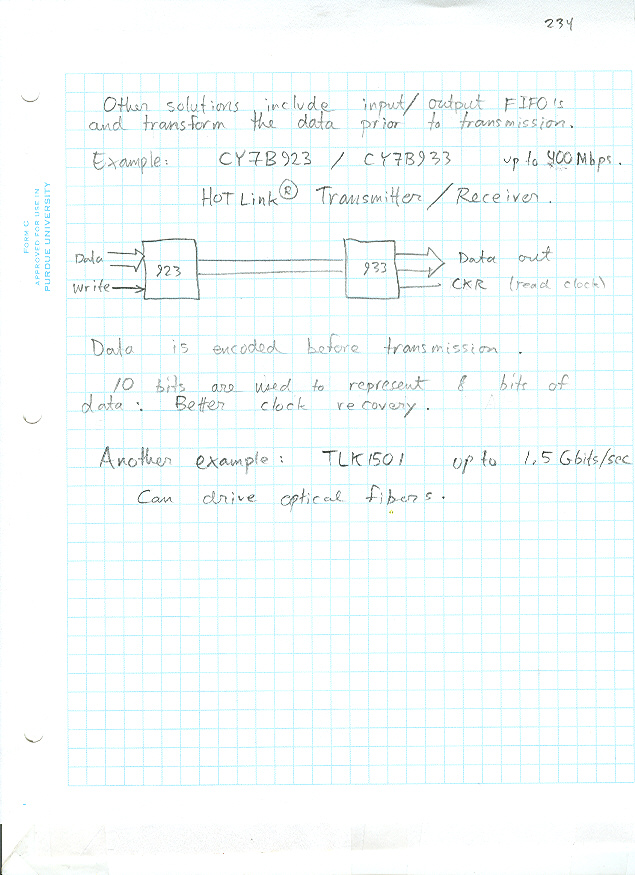 234
Other solutions include input/output FIFO's
and transform the data prior to transmission.
Example: CY7B923 / CY7B933 up to 400 Mbps.
HOTLink® Transmitter/Receiver.
Data
Write
923
933
Data out
CKR (read clock)
Data is encoded before transmission.
10 bits are used to represent 8 bits of
data: Better clock recovery.
Another example: TLK1501 up to 1.5 Gbits/sec
Can drive optical fibers.
FORM C
APPROVED FOR USE IN
PURDUE UNIVERSITY